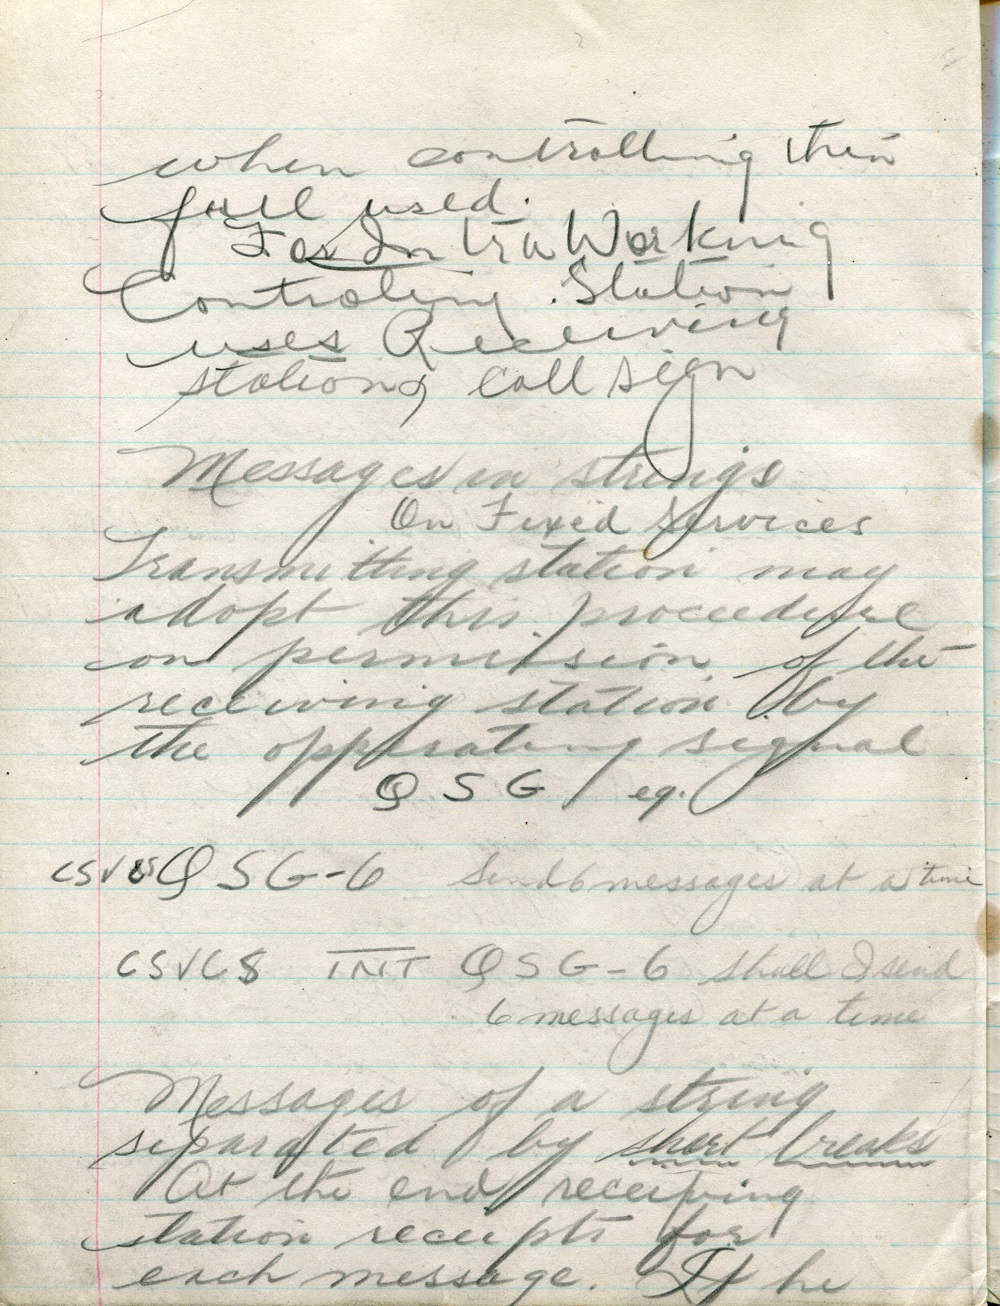 when controlling then
full used.
For Intra Working
Controling Station
uses Receiving
stations call sign
Messages in strings
On Fixed Services
Transmitting station may
adopt this proceedure
on permission of the
receiving station by
the opperating signal
QSG eg.
CSV QSG-6 Send 6 messages at a time
CSVC8 INT QSG-6 shall I send
6 messages at a time
Messages of a string
separated by short breaks
At the end receiving
station receipts for
each message. If he